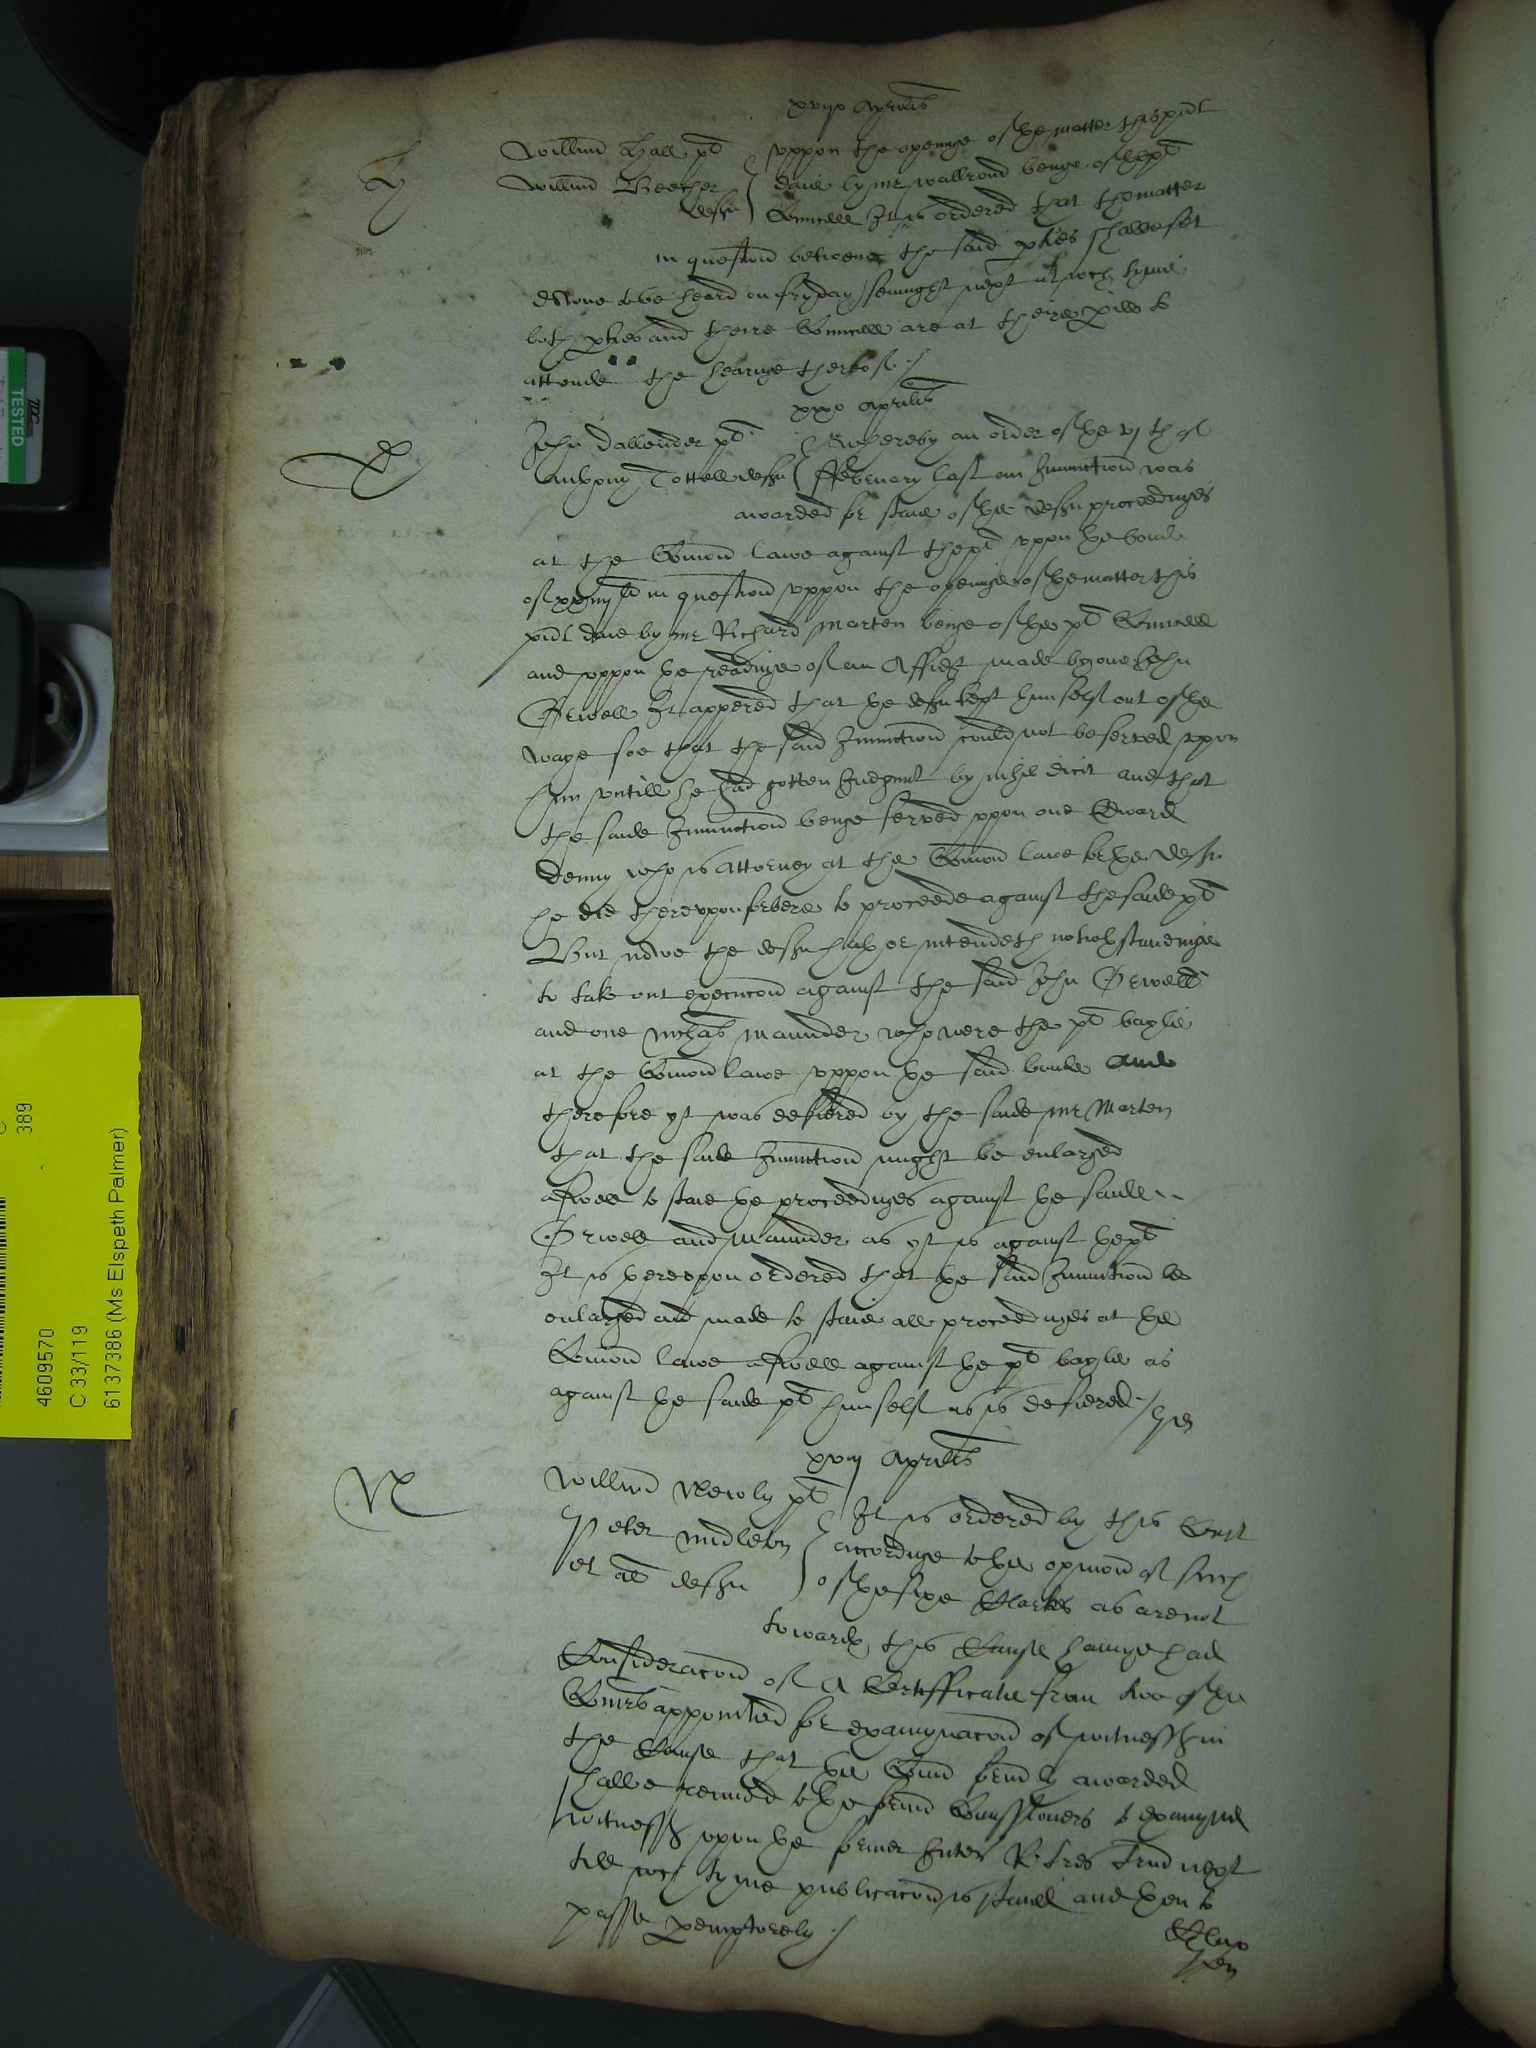 xviijo Aprilis
H
Willm̃d Hall pt uppon the openinge of the matter this pñt
Willm̃d Beecher daie by mr Wallrond beinge of the pt
defend Councell It is ordered that the matter
in question betweene the said pties shalbe set
downe to be heard on fryday sevnnight next at wch tyme
both pties and theire Councell are at theire pill to
attende the hearinge therof ./
xxo Aprilis
D
John Dallender pt Whereby an order of the vj th of
Anthony Tottell deft ffebruary last an Iniunction was
awarded for staie of the deft proceedinges
at the Comon lawe against the pt uppon the bonde
of in question uppon the openinge of the matter this
pñt daie by mr Richard Marten beinge of the pt Councell
and uppon the readinge of an Affidt made by one John
Orwell It appered that the deft kept himself out of the
waye soe that the said Iniunction could not be served upon
him untill he had gotten Iudgmt by nihil dicit and that
the saide Iniunction beinge served uppon one Edward
Denny who is Attorney at the Comon lawe for the deft
he did thereuppon forbere to proceede against the saide pt
But nowe the deft hath or intendeth notwthstandinge
to take out execucon against the said John Orwell
and one Nichas Maunder who were the pt bayle
at the Comon lawe uppon the said bonde And
therefore yt was desiered by the saide mr Marten
that the saide Iniunction might be enlarged
aswell to staie the proceedinges against the saide
Orwell and Maunder as yt is against the pt
It is thereupon ordered that the said Iniunction be
enlarged and made to staie all proceedinges at the
Comon lawe aswell against the pt bayle as
against the saide pt himself as is desiered ./
xviij Aprilis
N
Willm̃d Newly pt It is ordered by this Court
Peter Midleton accordinge to the opinion of such
et al deft of the sixe Clarkes as are not
towardes this Cause havinge had
Consideracon of A Certifficatie from two of the
Comrs appointed for examynacon of witnesses in
the Cause that the Comd formly awarded
shalbe renued to the former Commissioners to examyne
witnesses uppon the former Inter. R. tres Trin next
till wch tyme publicacon is staied and then to
passe pemptorely ./